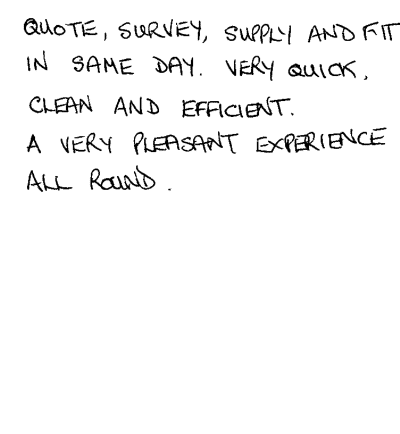 QUOTE, SURVEY, SUPPLY AND FIT
IN SAME DAY. VERY QUICK,
CLEAN AND EFFICIENT.
A VERY PLEASANT EXPERIENCE
ALL ROUND.